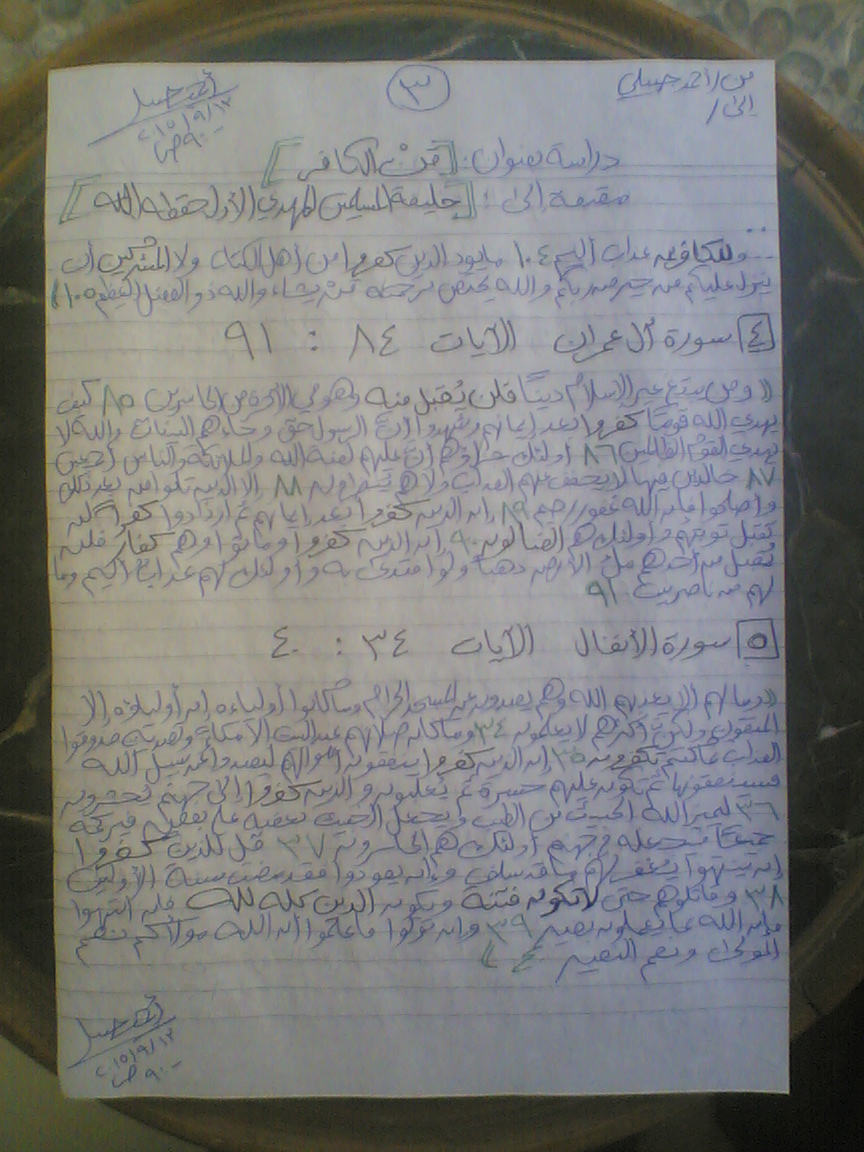 من / أحمد حسلي
إلى /
٣
أحمد حسلي
٢٠١٥/٩/١٢
ص ٩٠٠
دراسة بعنوان: [مَنْ الكافر]
مقدمة إلى: [خليفة المسلمين المهدي الأول حفظه الله]
وللكافرين عذاب أليم ١٠٤ ما يود الذين كفروا من أهل الكتاب ولا المشركين أن
ينزل عليكم من خير من ربكم والله يختص برحمته مَنْ يشاء والله ذو الفضل العظيم ١٠٥)
٤ سورة آل عمران الآيات ٨٤ : ٩١
((ومن يبتغ غير الإسلام دينًا فلن يُقبل منه وهو في الآخرة من الخاسرين ٨٥ كيف
يهدي الله قومًا كفروا بعد إيمانهم وشهدوا أنَّ الرسول حق وجاءهم البينات والله لا
يهدي القوم الظالمين ٨٦ أولئك جزاؤهم أنَّ عليهم لعنة الله والملائكة والناس أجمعين
٨٧ خالدين فيها لا يخفف عنهم العذاب ولا هم ينظرون ٨٨ إلا الذين تابوا من بعد ذلك
وأصلحوا فإن الله غفور رحيم ٨٩ إن الذين كفروا بعد إيمانهم ثم ازدادوا كفرًا لن
تقبل توبتهم وأولئك هم الضالون ٩٠ إن الذين كفروا وماتوا وهم كفار فلن
يُقبل من أحدهم ملئ الأرض ذهبًا ولو افتدى به وأولئك لهم عذاب أليم وما
لهم من ناصرين ٩١
٥ سورة الأنفال الآيات ٣٤ : ٤٠
((وما لهم ألا يعذبهم الله وهم يصدون عن المسجد الحرام وما كانوا أولياءه إن أولياؤه إلا
المتقون ولكنَّ أكثرهم لا يعلمون ٣٤ وما كان صلاتهم عند البيت إلا مكاءً وتصدية فذوقوا
العذاب بما كنتم تكفرون ٣٥ إن الذين كفروا ينفقون أموالهم ليصدوا عن سبيل الله
فسينفقونها ثم تكون عليهم حسرة ثم يغلبون والذين كفروا إلى جهنم يحشرون
٣٦ ليميز الله الخبيث من الطيب ويجعل الخبيث بعضه على بعض فيركمه
جميعًا فيجعله في جهنم أولئك هم الخاسرون ٣٧ قل للذين كفروا
إن ينتهوا يغفر لهم ما قد سلف وإن يعودوا فقد مضت سنة الأولين
٣٨ وقاتلوهم حتى لا تكون فتنة ويكون الدين كله لله فإن انتهوا
فإن الله بما يعملون بصير ٣٩ وإن تولوا فاعلموا أن الله مولاكم نعم
المولى ونعم النصير ٤٠))
أحمد حسلي
٢٠١٥/٩/١٢
ص ٩٠٠